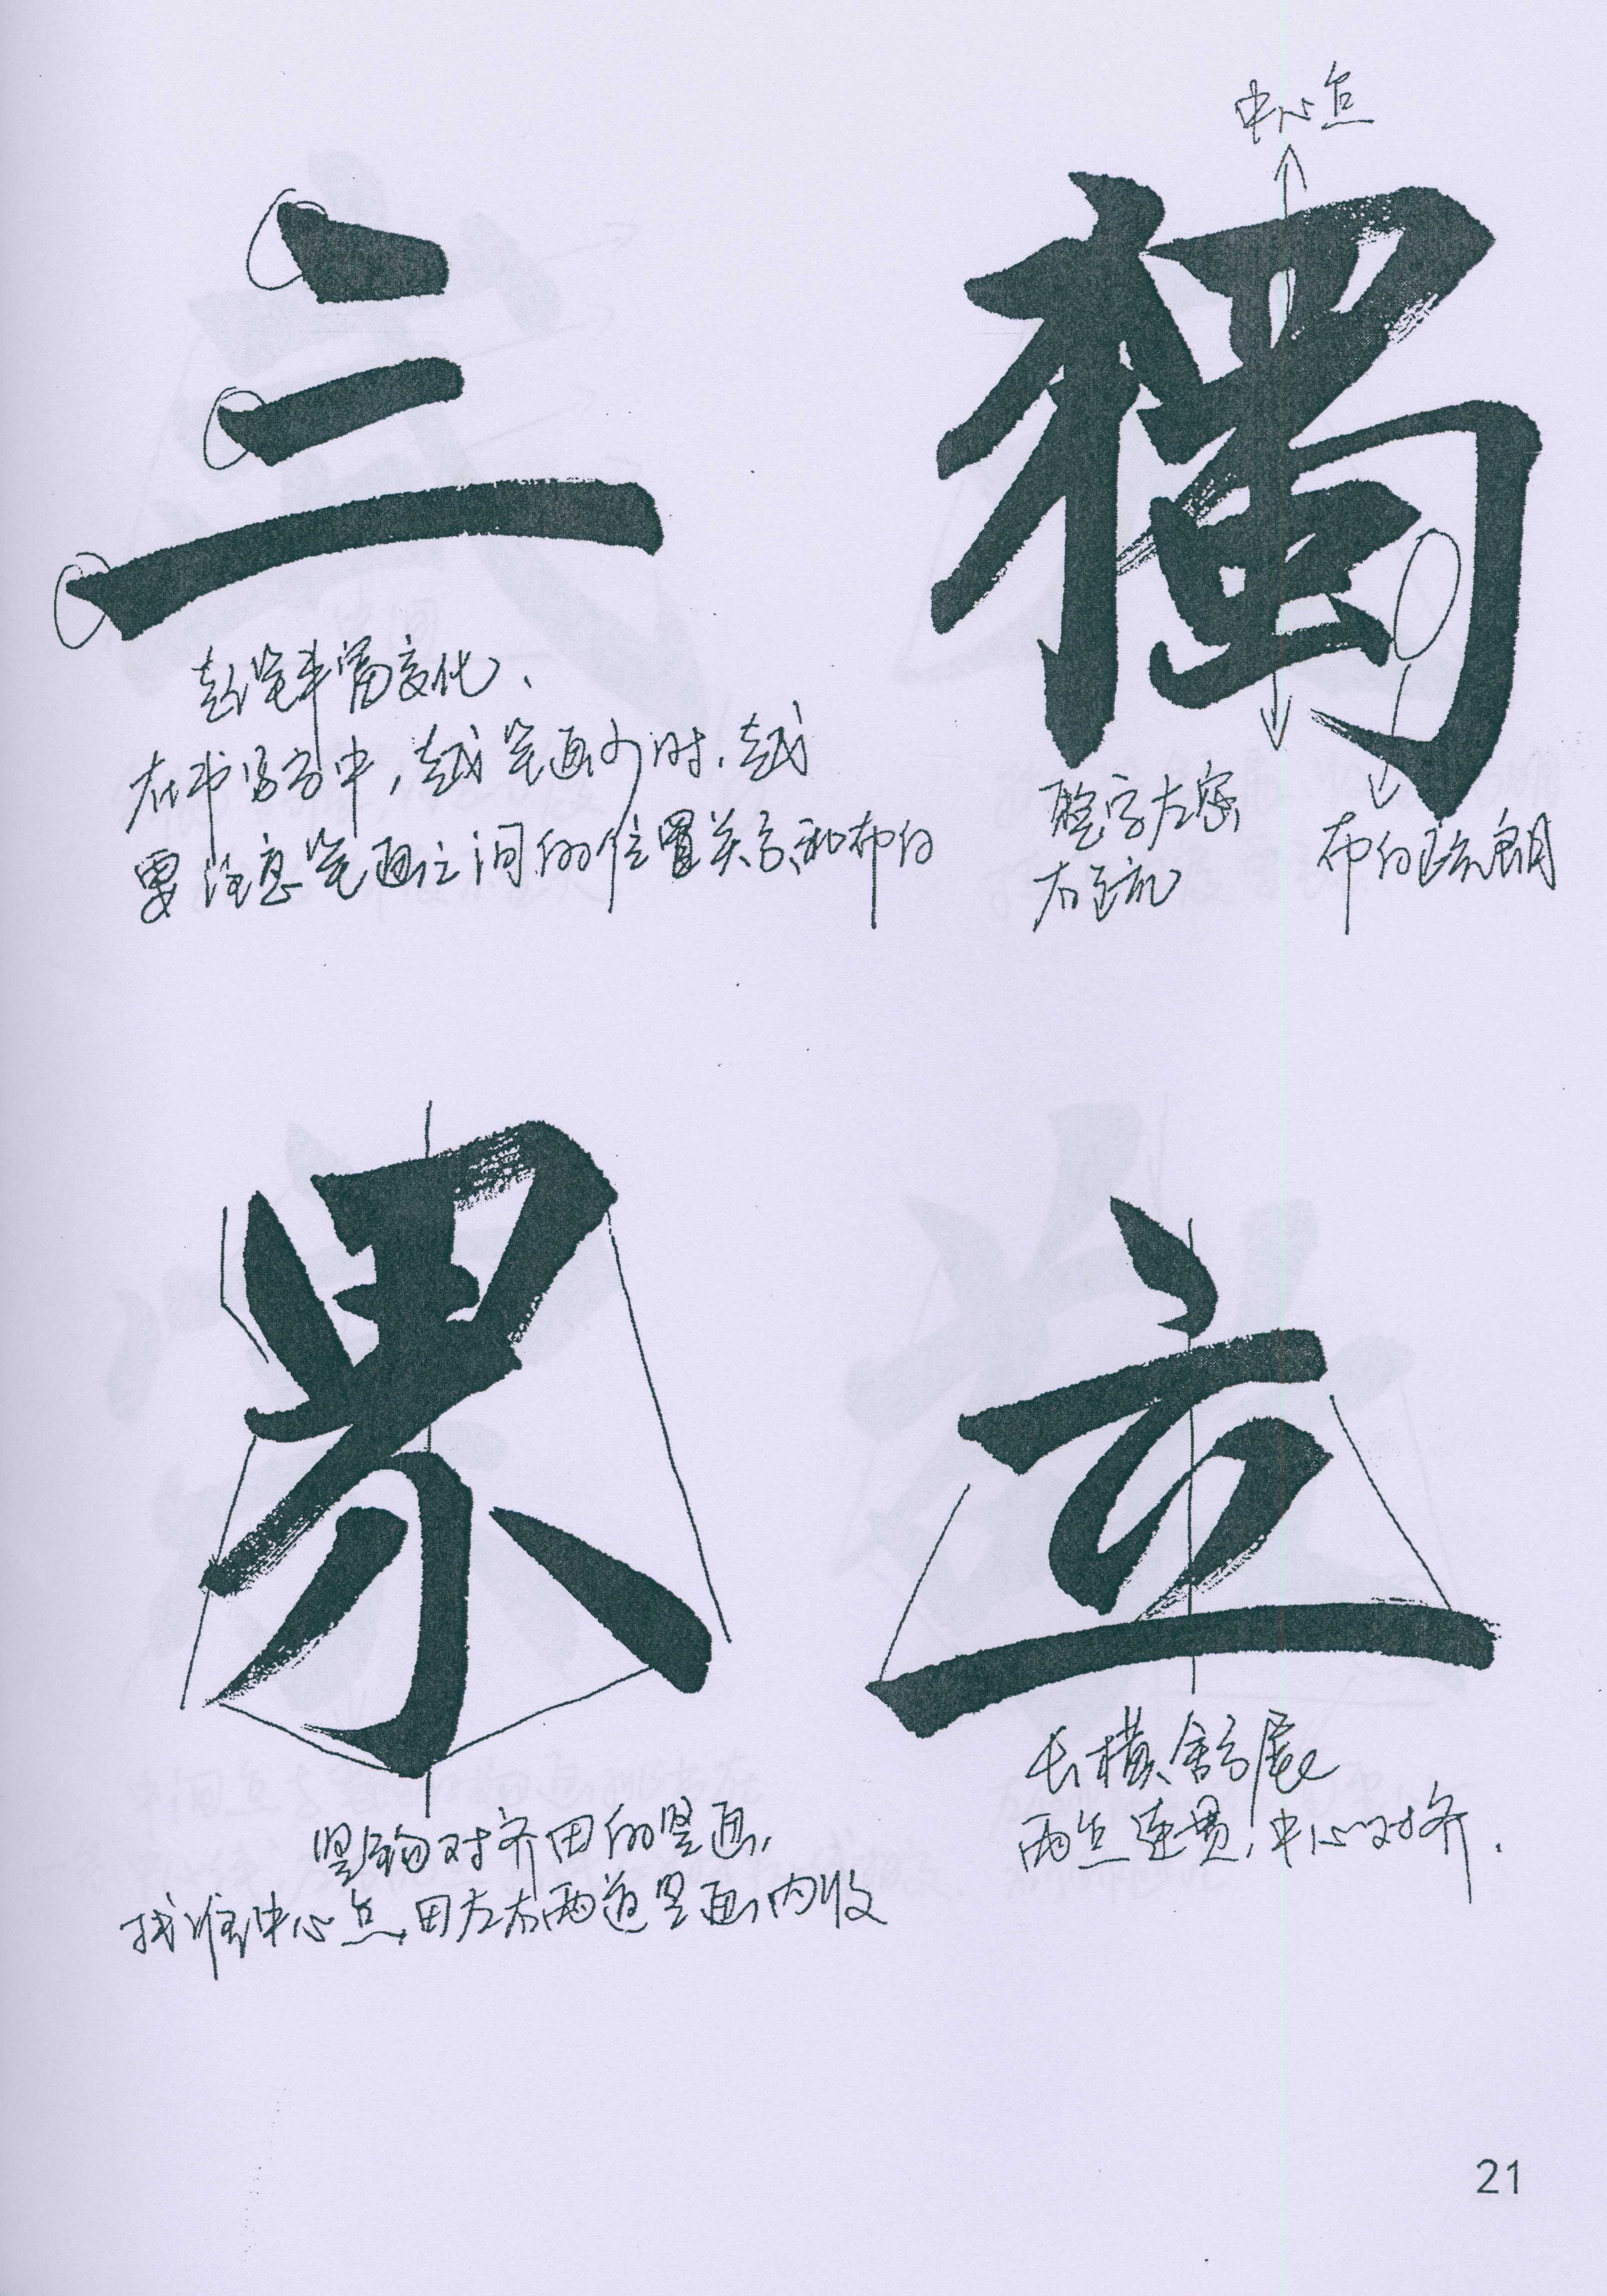 三
起笔丰富变化、
在书写字中，越笔画少时，越
要注意笔画之间的位置关系和布白
中心点
獨
整字左密
右疏
布白疏朗
累
竖钩对齐田的竖画，
找准中心点，田左右两道竖画内收
立
长横舒展
两点连贯，中心对齐．
21